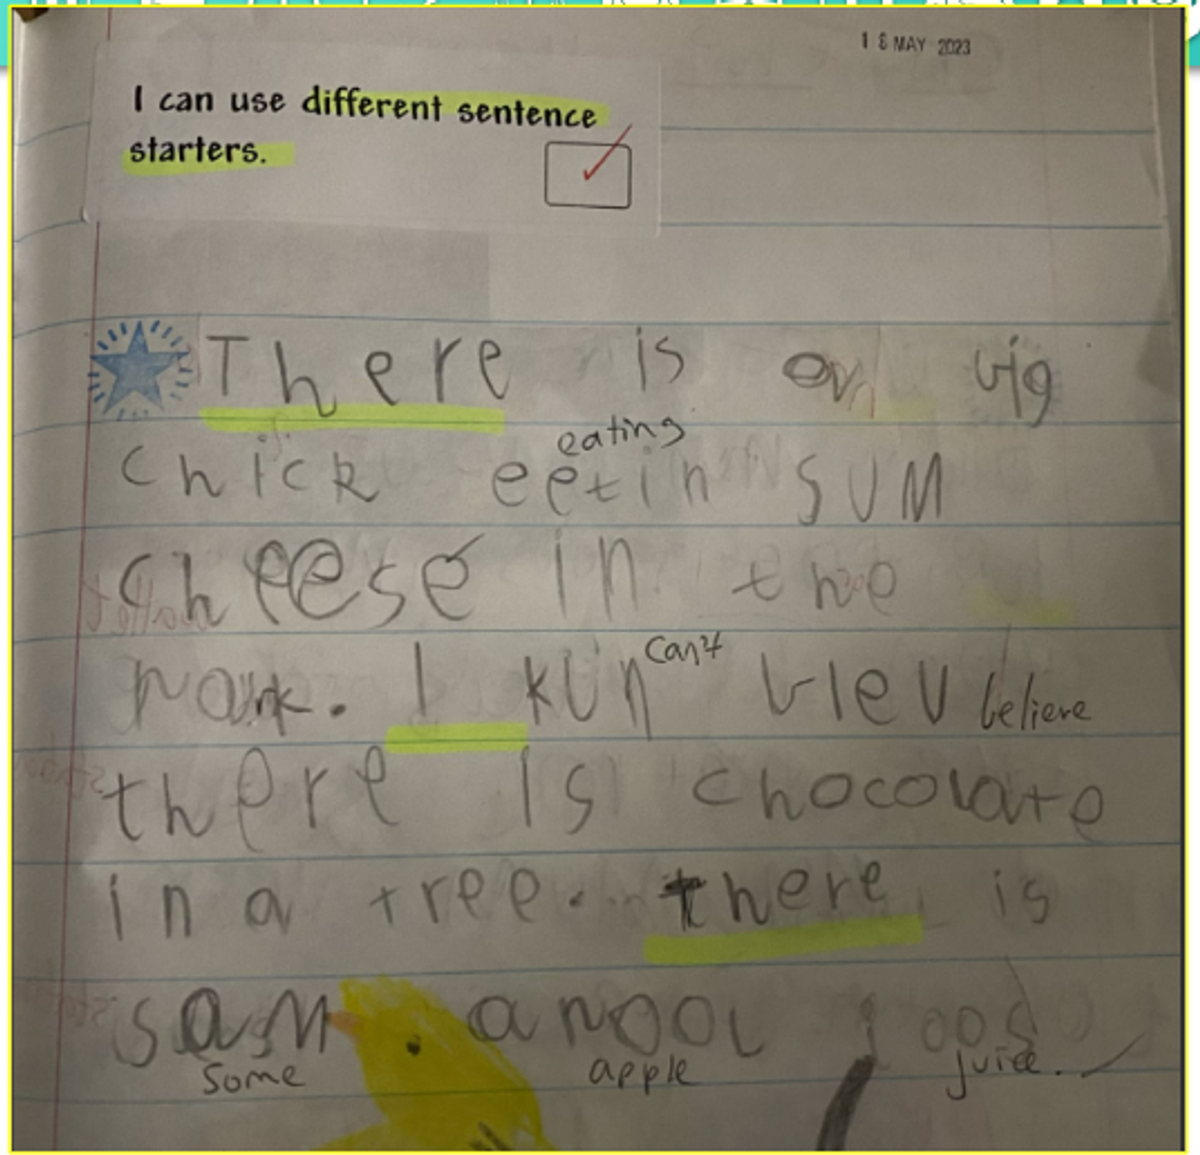 18 MAY 2023
I can use different sentence
starters.
There is a big
eating
chick eetin SUM
cheese in the
park. I kun can't blev believe
there is chocolate
in a tree. there is
sam apool joos
some apple juice.